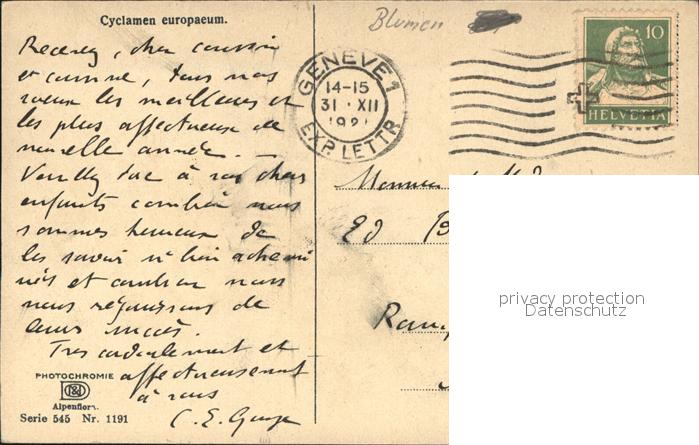 Cyclamen europaeum.
Blumen
Recevez, cher cousin
et cousine, tous nos
voeux les meilleurs et
les plus affectueux de
nouvelle année. —
Veuillez dire à vos chers
enfants combien nous
sommes heureux de
les savoir si bien achemi
nés et combien nous
nous réjouissons de
leurs succès.
Très cordialement et
affectueusement
à vous
C. E.
PHOTOCHROMIE
Alpenflora.
Serie 545 Nr. 1191
GENÈVE 1
14-15
31 · XII
192
EXP. LETTR
10
HELVETIA
Monsieur
Ed
privacy protection
Datenschutz